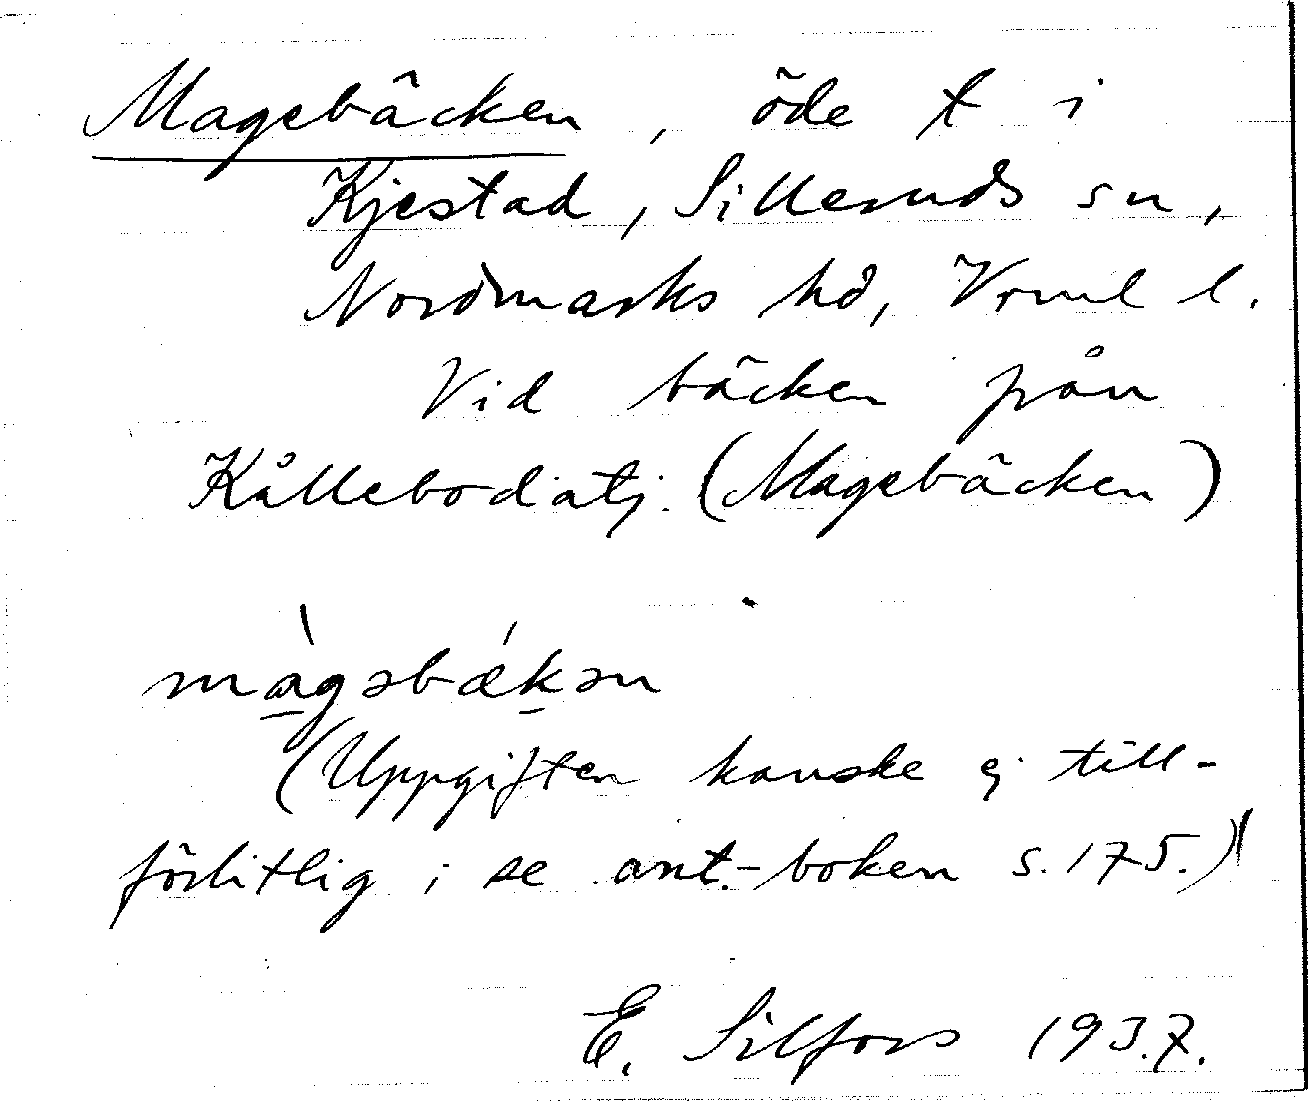 Magebäcken, öde t i
Kjestad, Silleruds sn,
Nordmarks hd, Vrml l.
Vid bäcken från
Kållebodatj. (Magebäcken)
màgəbǽkən
(Uppgiften kanske ej till-
förlitlig; se ant.-boken s. 175.)
E. Silfors 1937.